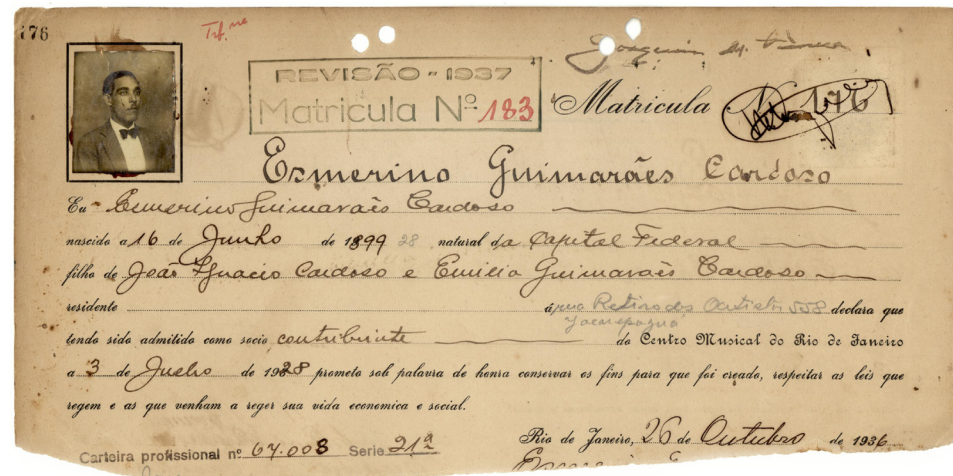 176
REVISÃO - 1937
Matricula Nº 183
Matricula 176
Esmerino Guimarães Cardoso
Eu Esmerino Guimarães Cardoso
nascido a 16 de Junho de 1899 28 natural da Capital Federal
filho de João Ignacio Cardoso e Emilia Guimarães Cardoso
residente á rua Retiro dos 558 declara que
Jacarepagua
tendo sido admitido como socio contribuinte do Centro Musical do Rio de Janeiro
a 3 de Julho de 1928 prometo sob palavra de honra conservar os fins para que foi creado, respeitar as leis que
regem e as que venham a reger sua vida economica e social.
Rio de Janeiro, 26 de Outubro de 1936
Carteira profissional nº 67.008 Serie 21ª